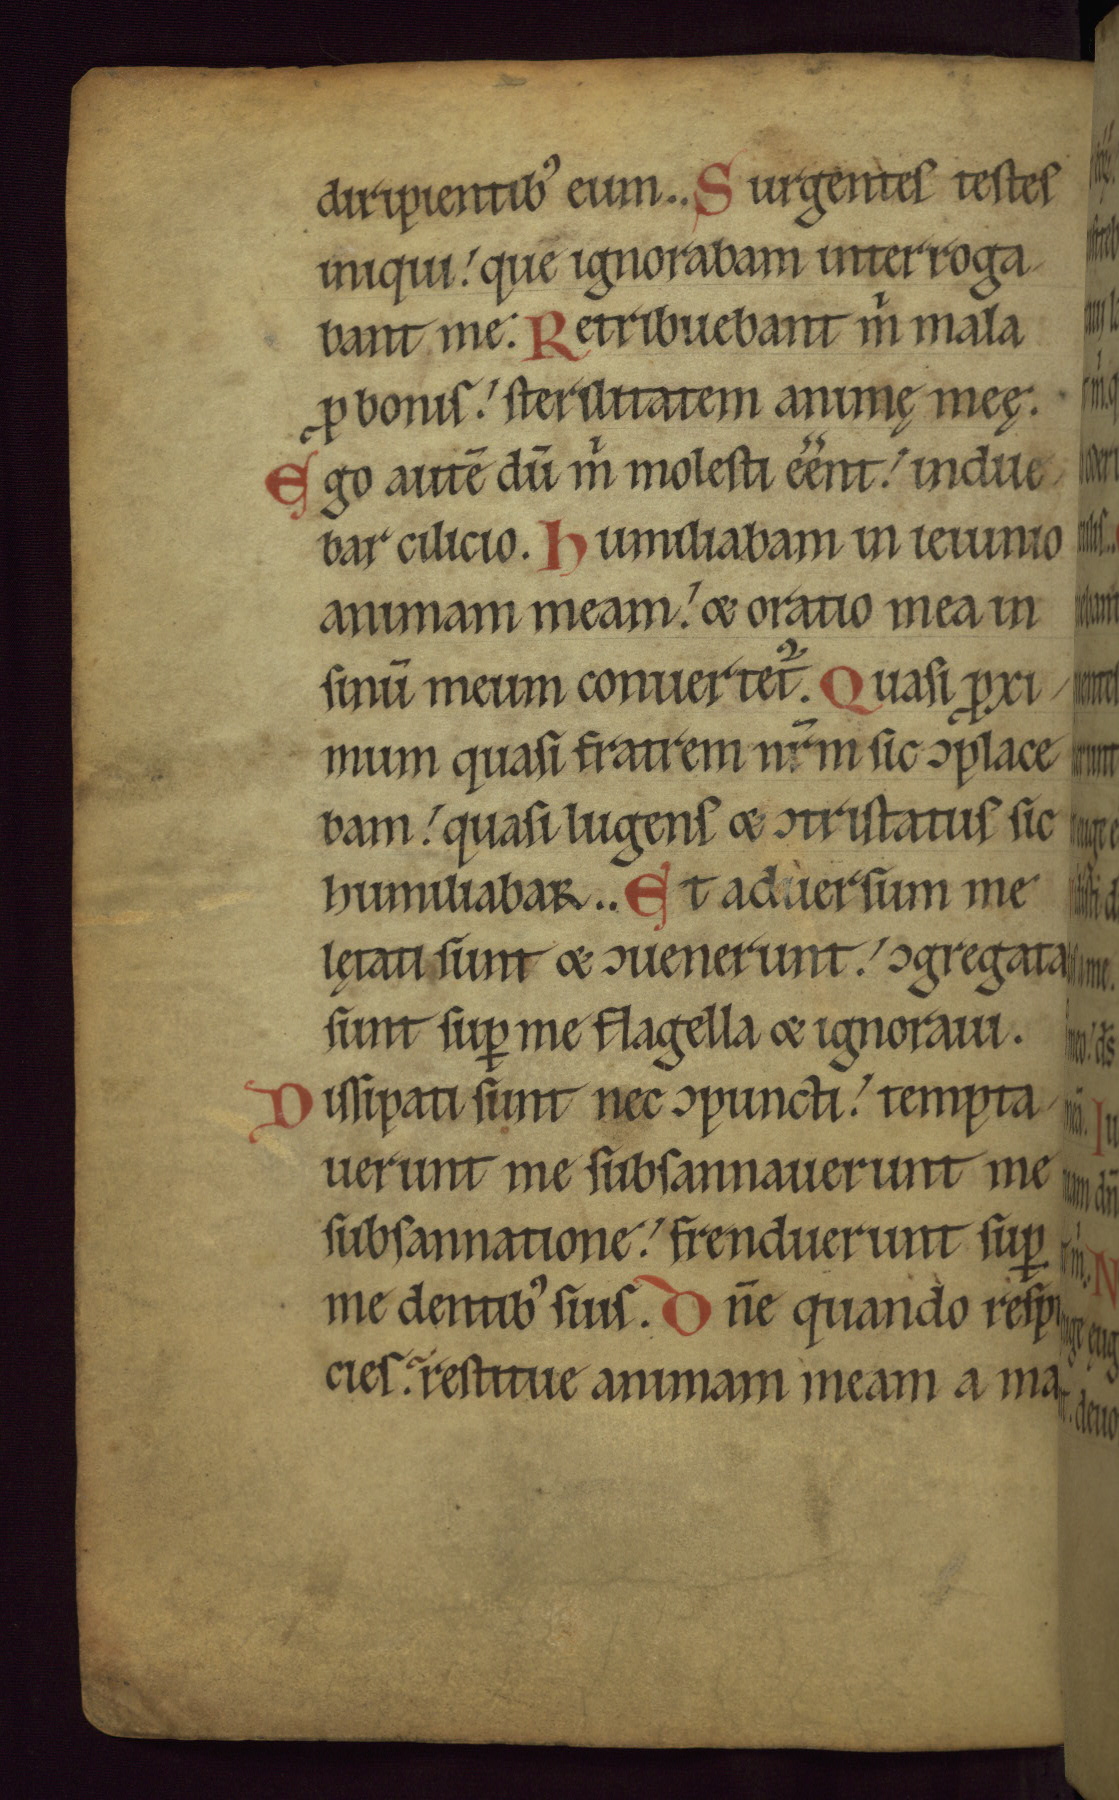 diripientibꝰ eum.. Surgentes testes
iniqui! que ignorabam interroga
bant me. Retribuebant m̍ mala
ꝓ bonis! sterilitatem animę meę.
Ego autē dū m̍ molesti ēēnt! indue
bar cilicio. Humiliabam in ieiunio
animam meam! & oratio mea in
sinū meum conuertet᷑. Quasi ꝓxi
mum quasi fratrem nr̄m sic ↄplace
bam! quasi lugens & ↄtristatus sic
humiliabar.. Et aduersum me
lętati sunt & ↄuenerunt! ↄgregata
sunt suꝑ me flagella & ignoraui.
Dissipati sunt nec ↄpuncti! tempta
uerunt me subsannauerunt me
subsannatione! frenduerunt suꝑ
me dentibꝰ suis. Dn̄e quando respi
cies. restitue animam meam a ma